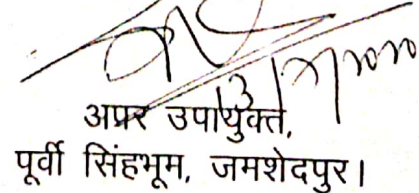 अपर उपायुक्त,
पूर्वी सिंहभूम, जमशेदपुर।